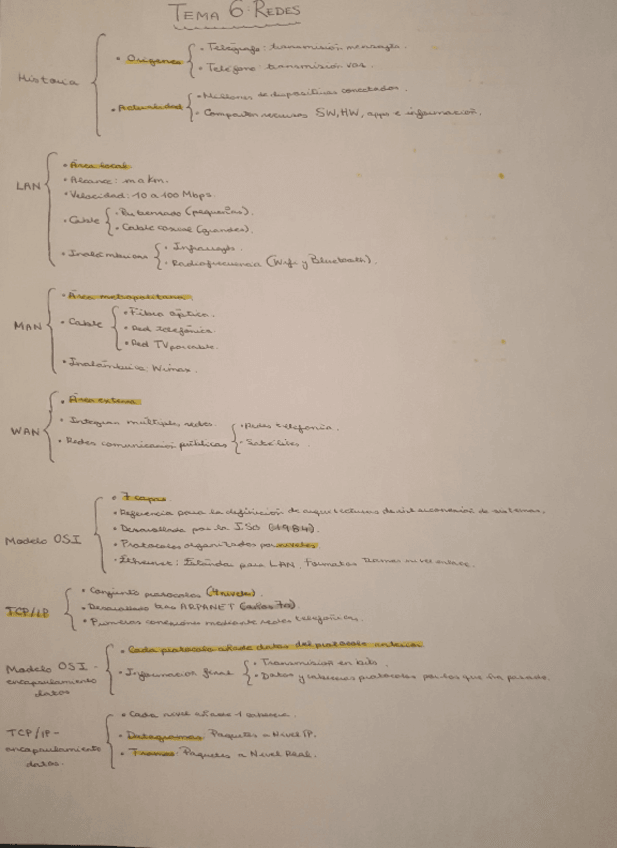 TEMA 6: REDES
Historia
• Orígenes
• Telégrafo: transmisión mensajes.
• Teléfono: transmisión voz.
• Actualidad
• Millones de dispositivos conectados.
• Compartir recursos SW, HW, apps e información.
LAN
• Área local.
• Alcance: m a km.
• Velocidad: 10 a 100 Mbps.
• Cable
• Par trenzado (pequeñas).
• Cable coaxial (grandes).
• Inalámbricas
• Infrarrojos.
• Radiofrecuencia (Wifi y Bluetooth).
MAN
• Área metropolitana
• Cable
• Fibra óptica.
• Red telefónica.
• Red TV por cable.
• Inalámbrica: Wimax.
WAN
• Área extensa
• Integran múltiples redes.
• Redes comunicación públicas
• Redes telefonía.
• Satélites.
Modelo OSI
• 7 capas
• Referencia para la definición de arquitecturas de interconexión de sistemas.
• Desarrollada por la ISO (1984).
• Protocolos organizados por niveles
• Ethernet: Estándar para LAN. Formatos tramas nivel enlace.
TCP/IP
• Conjunto protocolos (4 niveles)
• Desarrollado tras ARPANET (años 70)
• Primeras conexiones mediante redes telefónicas.
Modelo OSI -
encapsulamiento
datos
• Cada protocolo añade datos del protocolo anterior
• Información final
• Transmisión en bits.
• Datos y cabeceras protocolos por los que ha pasado.
TCP/IP -
encapsulamiento
datos.
• Cada nivel añade 1 cabecera.
• Datagramas: Paquetes a Nivel IP.
• Tramas: Paquetes a Nivel Real.